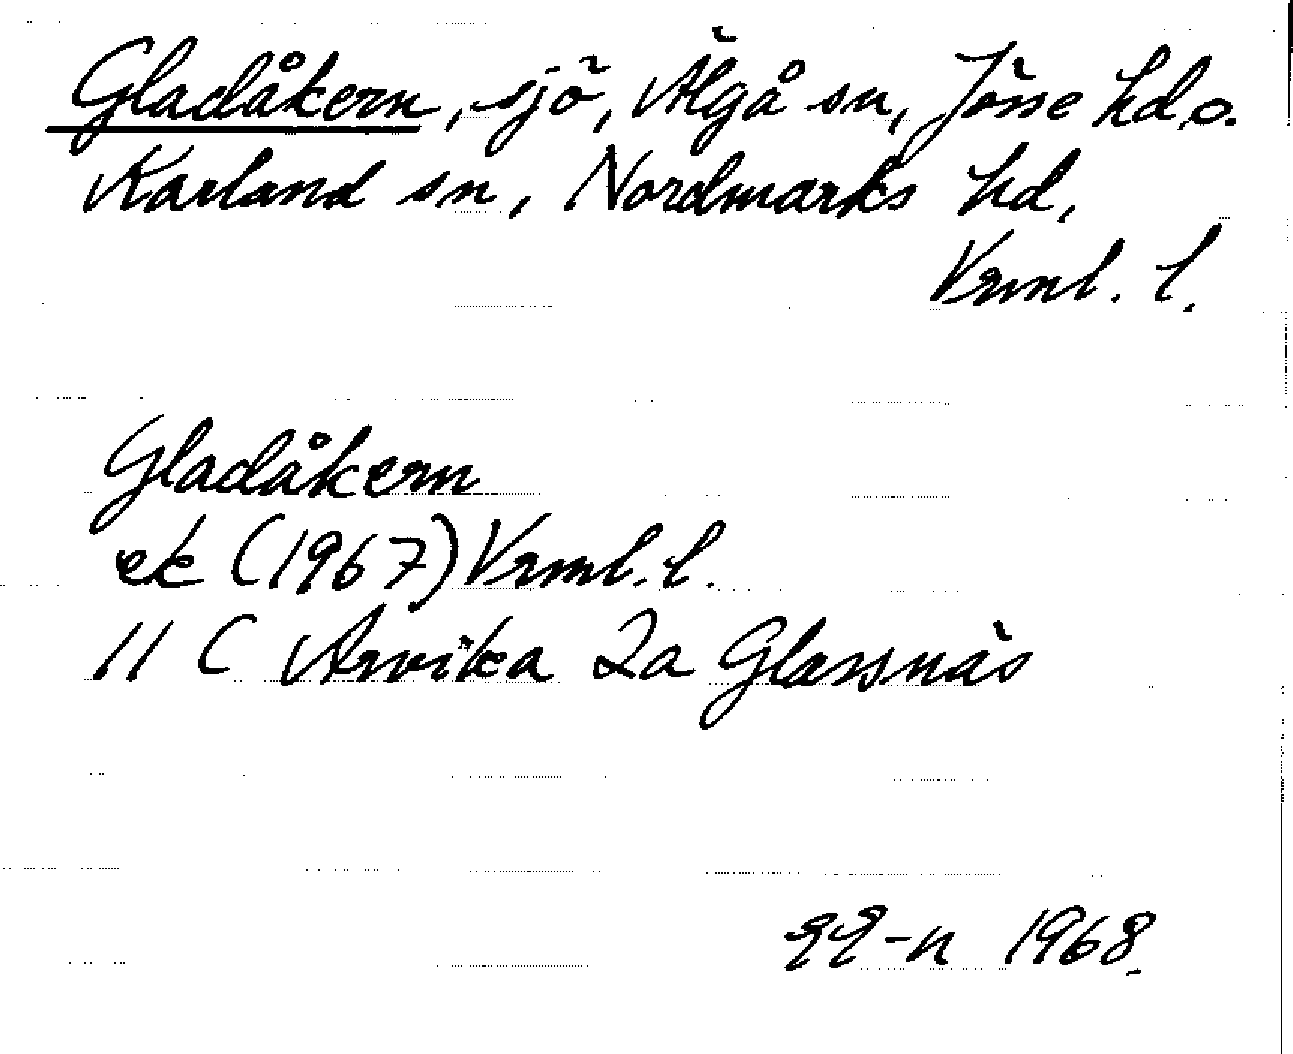 Gladåkern, sjö, Älgå sn, Jösse hd, o.
Karland sn, Nordmarks hd,
Vrml. l.
Gladåkern
ek (1967) Vrml. l.
11 C Arvika 2a Glassnäs
-n 1968